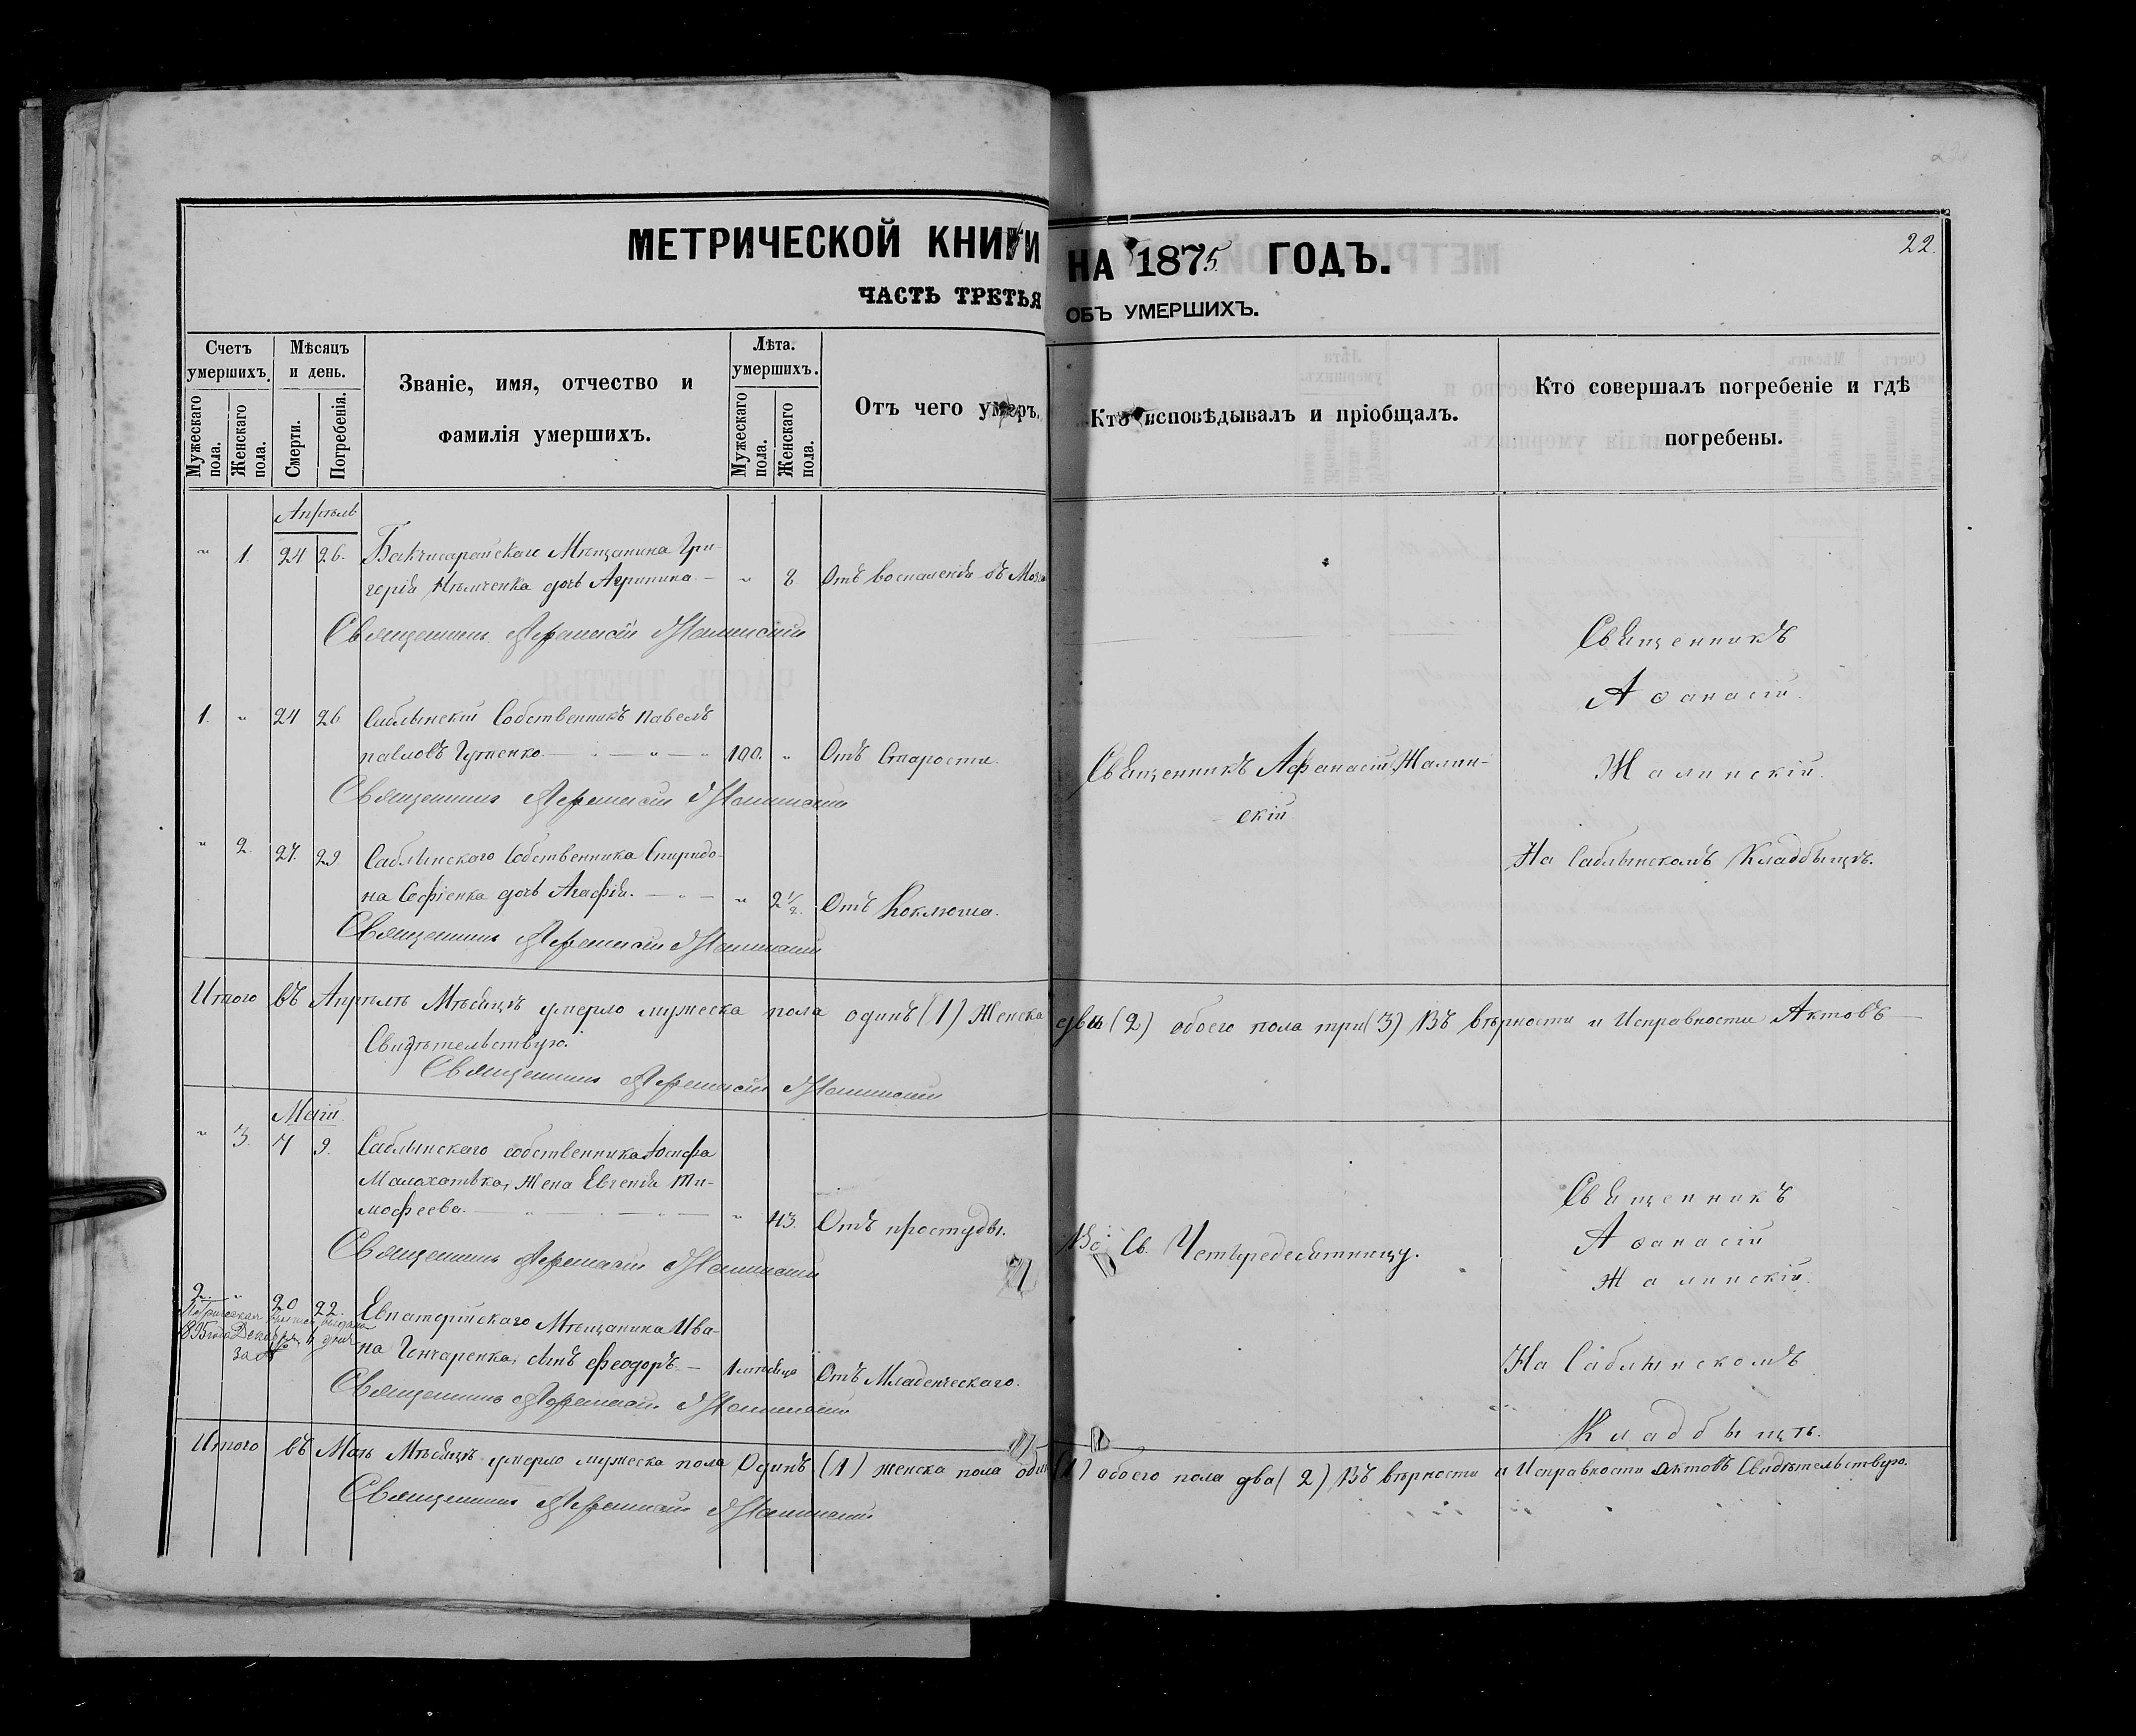 МЕТРИЧЕСКОЙ КНИГИ НА 1875. ГОДЪ.
22.
ЧАСТЬ ТРЕТЬЯ ОБЪ УМЕРШИХЪ.
Счетъ умершихъ.
Мужескаго пола.
Женскаго пола.
Мѣсяцъ и день.
Смерти.
Погребенія.
Званіе, имя, отчество и
фамилія умершихъ.
Лѣта.
умершихъ.
Мужескаго пола.
Женскаго пола.
Отъ чего умеръ.
Кто исповѣдывалъ и пріобщалъ.
Кто совершалъ погребеніе и гдѣ
погребены.
Апрѣль
" 1. 24 26. Бакчисарайскаго Мѣщанина Гри-
горія Нѣмченка дочь Агрипина — " 8 Отъ воспаленія въ Мозгу
Священникъ Афанасій Жалинскій
1. " 24 26 Саблынскій Собственникъ Павелъ
павловъ Гутенко. — " — " 100. " Отъ Старости.
Священникъ Афанасій Жалинскій
" 2. 27. 29 Саблынского Собственника Спиридо-
на Софіенка дочь Агафія. — " — " 2 1/2. Отъ Коклюша.
Священникъ Афанасій Жалинскій
Священникъ Афанасій Жалин-
скій
Священникъ
Аѳанасій
Жалинскій.
На Саблынскомъ Кладбыщѣ.
Итого въ Апрѣлѣ Мѣсяцѣ умерло мужеска пола одинъ (1) Женска двѣ (2) обоего пола три (3) Въ вѣрности и Исправности Актовъ —
Свидѣтельствую.
Священникъ Афанасій Жалинскій
Маій
" 3. 7 9. Саблынского собственника Іосифа
Малахатька, Жена Евгенія Ти-
мофеева. — " — " — " 43. Отъ простуды.
Священникъ Афанасій Жалинскій
Во Св. Четыредесятницу.
2. " 20 22. Евпаторійскаго Мѣщанина Ива-
на Гончаренка, сынъ Феодоръ. — 1 мѣсяца Отъ Младенческаго.
Священникъ Афанасій Жалинскій
Метрическая выпись выдана
1895 года Декабря 4 дня
за №
Священникъ
Аѳанасій
Жалинскій.
На Саблынскомъ
Кладбыщѣ.
Итого въ Маѣ Мѣсяцѣ умерло мужеска пола Одинъ (1) женска пола одна (1) обоего пола два (2) Въ вѣрности и Исправности Актовъ Свидѣтельствую.
Священникъ Афанасій Жалинскій